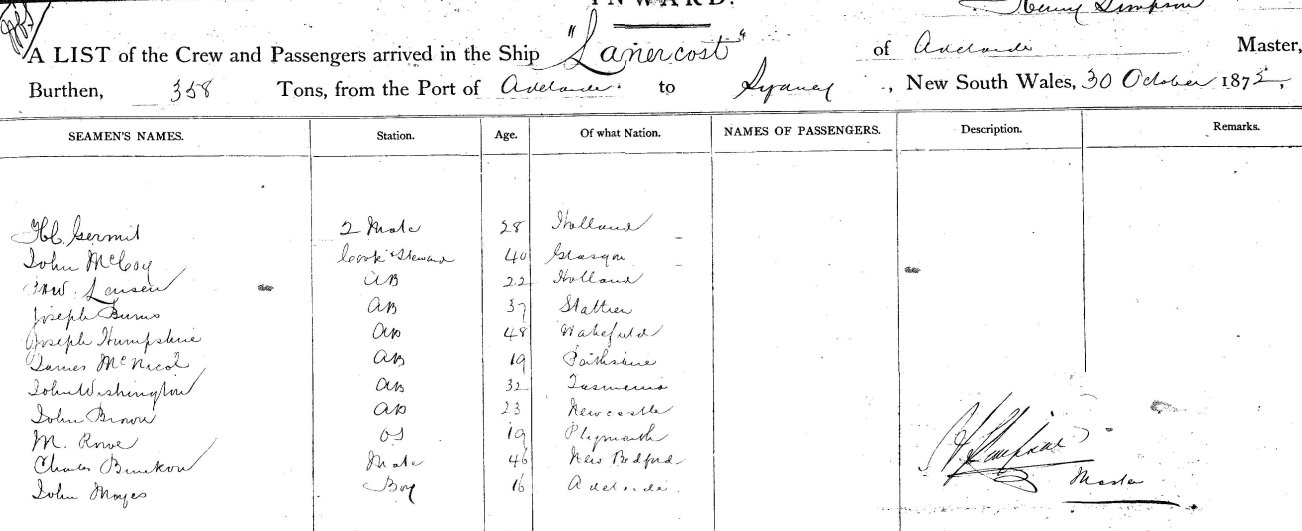 INWARD.
Henry Simpson
A LIST of the Crew and Passengers arrived in the Ship "Lanercost" of Adelaide Master,
Burthen, 358 Tons, from the Port of Adelaide to Sydney, New South Wales, 30 October 1872,
SEAMEN'S NAMES. Station. Age. Of what Nation. NAMES OF PASSENGERS. Description. Remarks.
Germit 2 Mate 28 Holland
John McCoy Cook & Steward 40 Glasgow
Lansen AB 22 Holland
Joseph Burns AB 37
Joseph Humpshire AB 48 Wakefield
James McNicol AB 19 Perthshire
John Washington AB 32 Tasmania
John Brown AB 23 Newcastle
M. Rowe OS 19 Plymouth
Charles Mate 46 New Bedford
John Moyes Boy 16 Adelaide
H. Simpson
Master